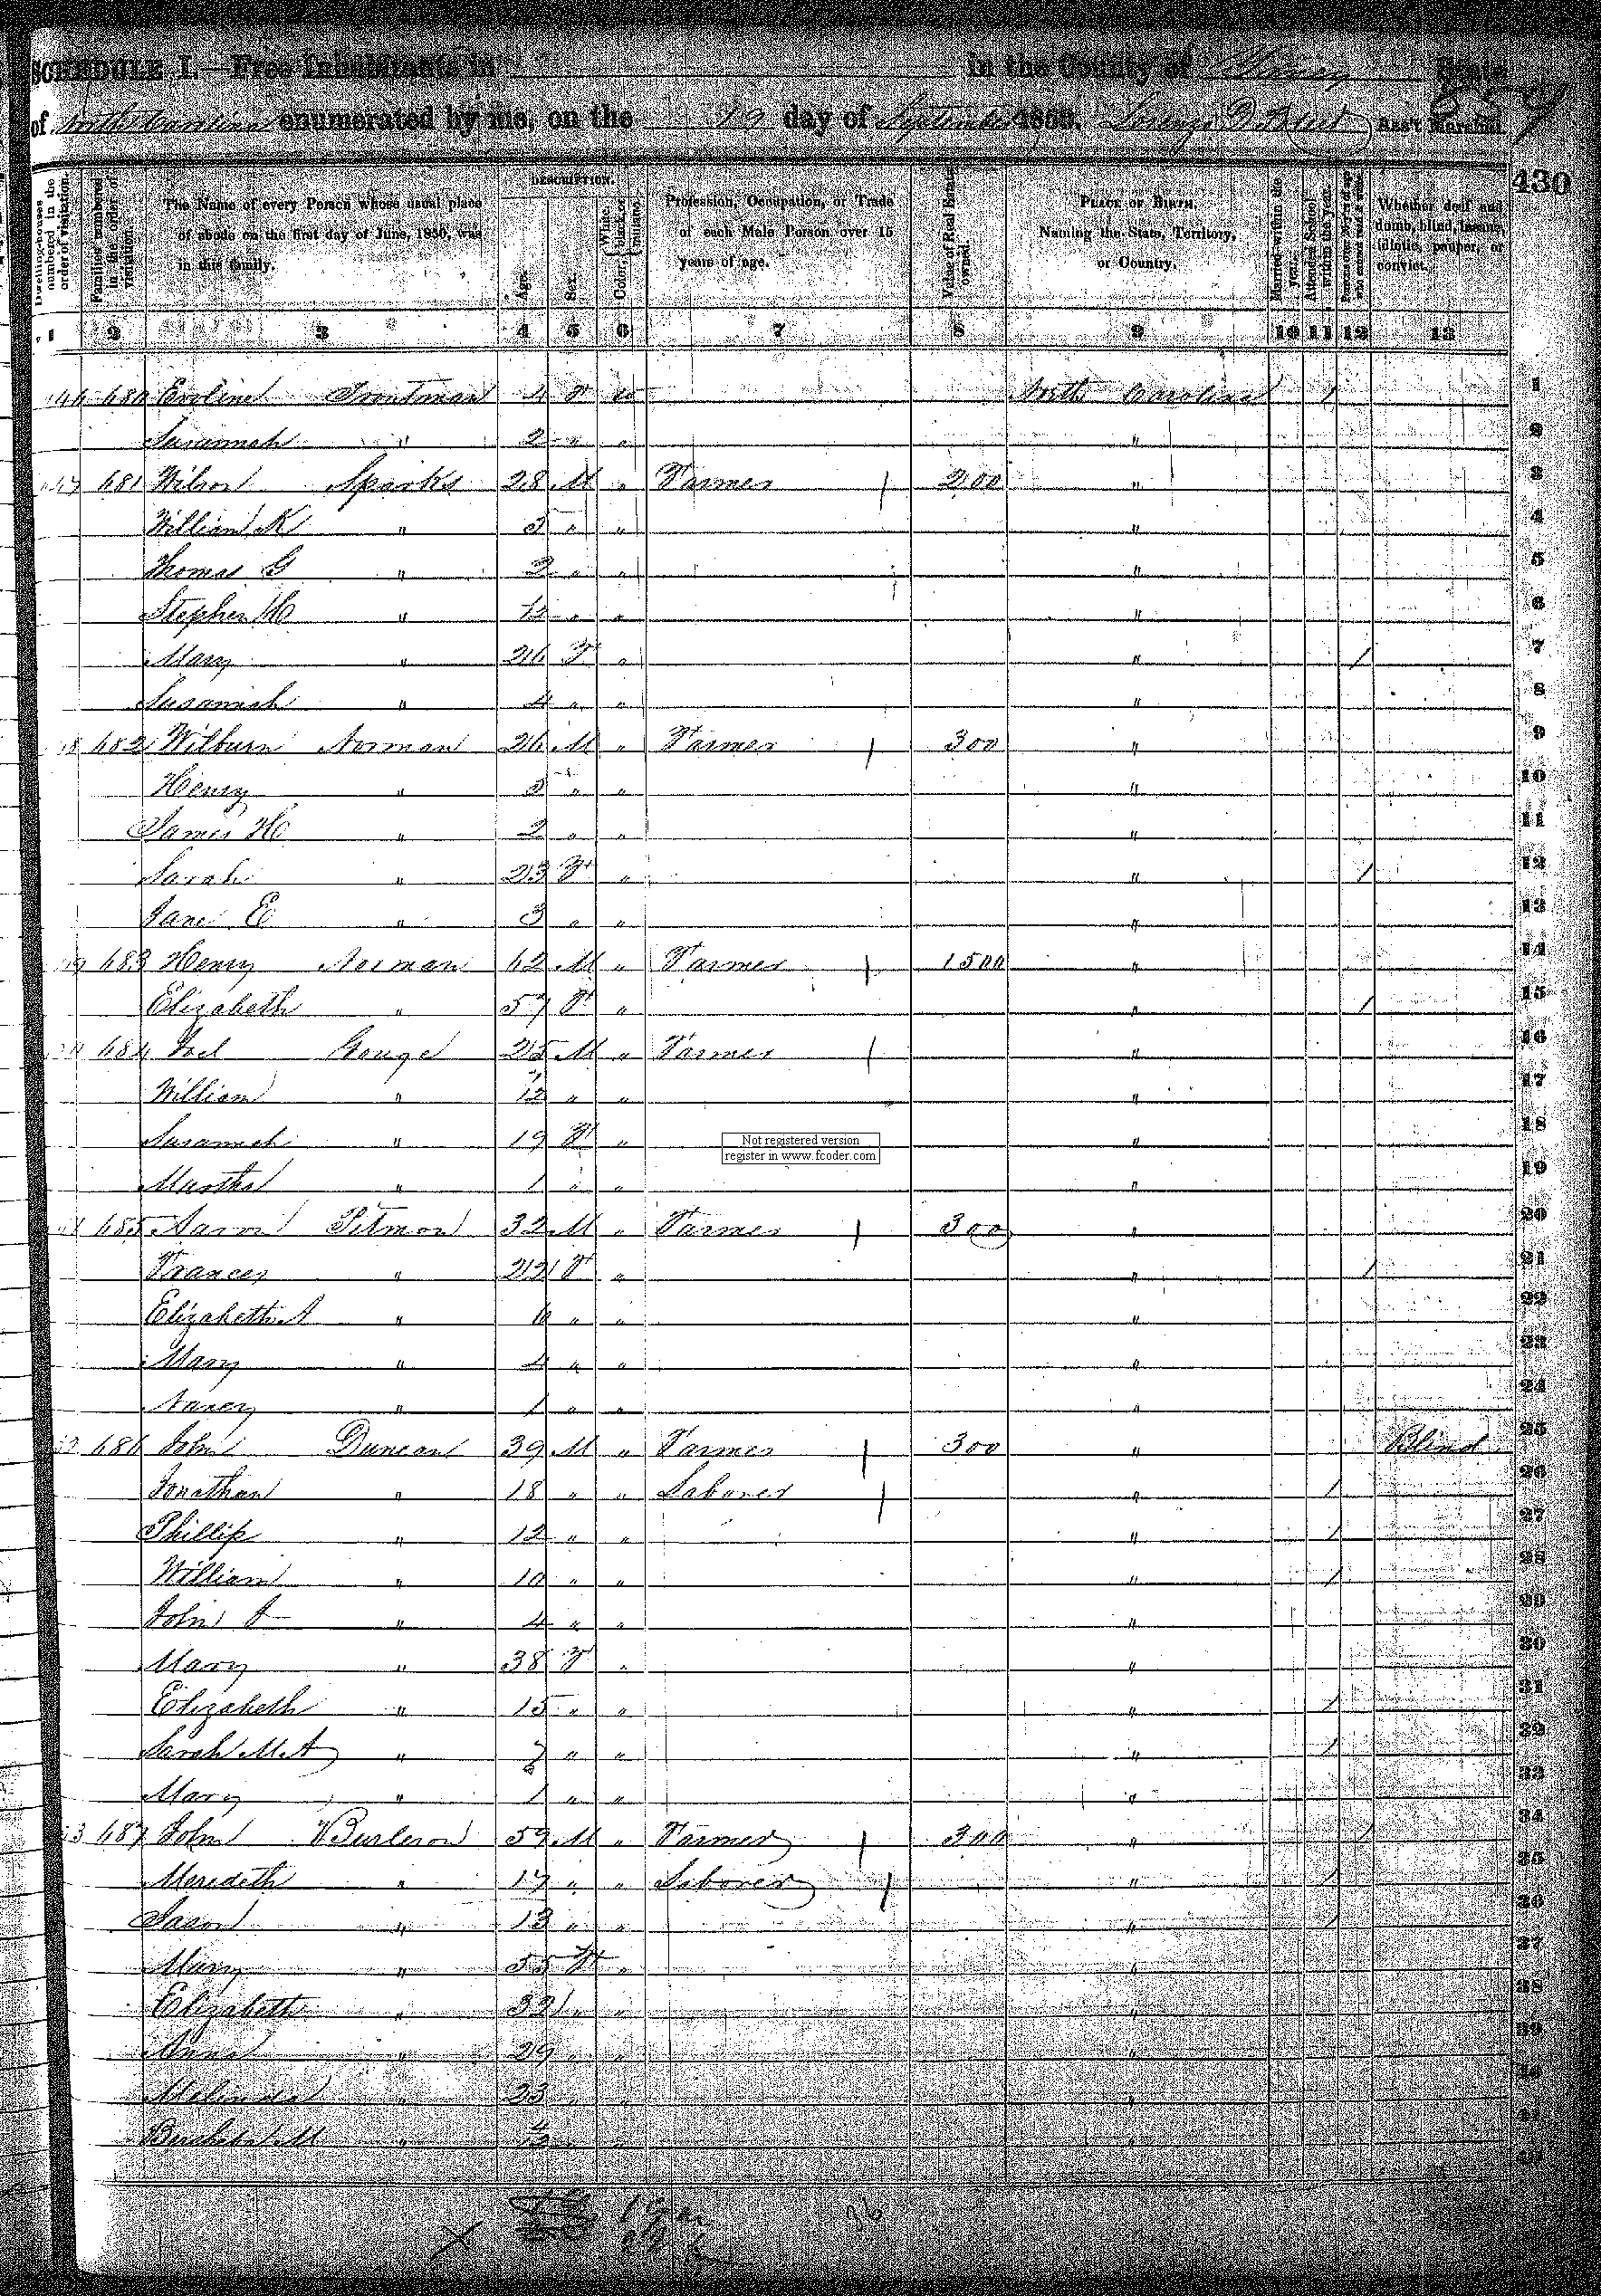 SCHEDULE I.—Free Inhabitants in in the County of Yancey State
of North Carolina enumerated by me, on the 19 day of September 1850. Ass't Marshal.
430
Dwelling-houses numbered in the order of visitation.
Families numbered in the order of visitation.
The Name of every Person whose usual place of abode on the first day of June, 1850, was in this family.
DESCRIPTION.
Age.
Sex.
Color, White, black, or mulatto.
Profession, Occupation, or Trade of each Male Person over 15 years of age.
Value of Real Estate owned.
PLACE OF BIRTH. Naming the State, Territory, or Country.
Married within the year.
Attended School within the year.
Persons over 20 y'rs of age who cannot read & write.
Whether deaf and dumb, blind, insane, idiotic, pauper, or convict.
1 2 3 4 5 6 7 8 9 10 11 12 13
680 Eveline Troutman 4 F W North Carolina 1 1
Susannah " 2 " " " 2
681 Wilson Sparks 28 M " Farmer 200 " 3
William K " 5 " " " 4
Thomas G " 2 " " " 5
Stephen H " /12 " " " 6
Mary " 26 F " " 1 7
Susannah " 4 " " " 8
682 Wilburn Norman 26 M " Farmer 300 " 9
Henry " 5 " " " 10
James H " 2 " " " 11
Sarah " 23 F " " 1 12
Jane E " 3 " " " 13
683 Henry Norman 62 M " Farmer 1500 " 14
Elizabeth " 57 F " " 1 15
684 Joel Gouge 25 M " Farmer " 16
William " /12 " " " 17
Susannah " 19 F " " 18
Martha " 1 " " " 19
685 Aaron Pitman 32 M " Farmer 300 " 20
Frances " 22 F " " 1 21
Elizabeth A " 6 " " " 22
Mary " 4 " " " 23
Nancy " 1 " " " 24
686 John Duncan 39 M " Farmer 300 " Blind 25
Jonathan " 18 " " Laborer " 1 26
Phillip " 12 " " " 1 27
William " 10 " " " 1 28
John " 4 " " " 29
Mary " 38 F " " 30
Elizabeth " 15 " " " 1 31
Sarah M. A " 7 " " " 1 32
Mary " 1 " " " 33
687 John Burleson 59 M " Farmer 300 " 1 34
Merideth " 17 " " Laborer " 1 35
Jason " 13 " " " 1 36
Mary " 55 F " " 37
Elizabeth " 32 " " " 38
Anna " 29 " " " 39
Melinda " 23 " " "
M " /12 " " "
Not registered version
register in www.fcoder.com